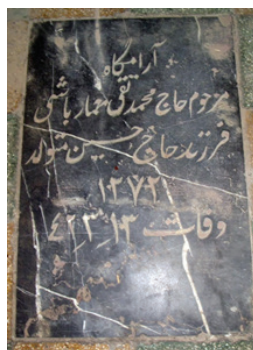 آرامگاه
مرحوم حاج محمدتقی معمارباشی
فرزند حاج حسین متولد
۱۲۷۲
وفات ۱۳ر۳ر۴۲